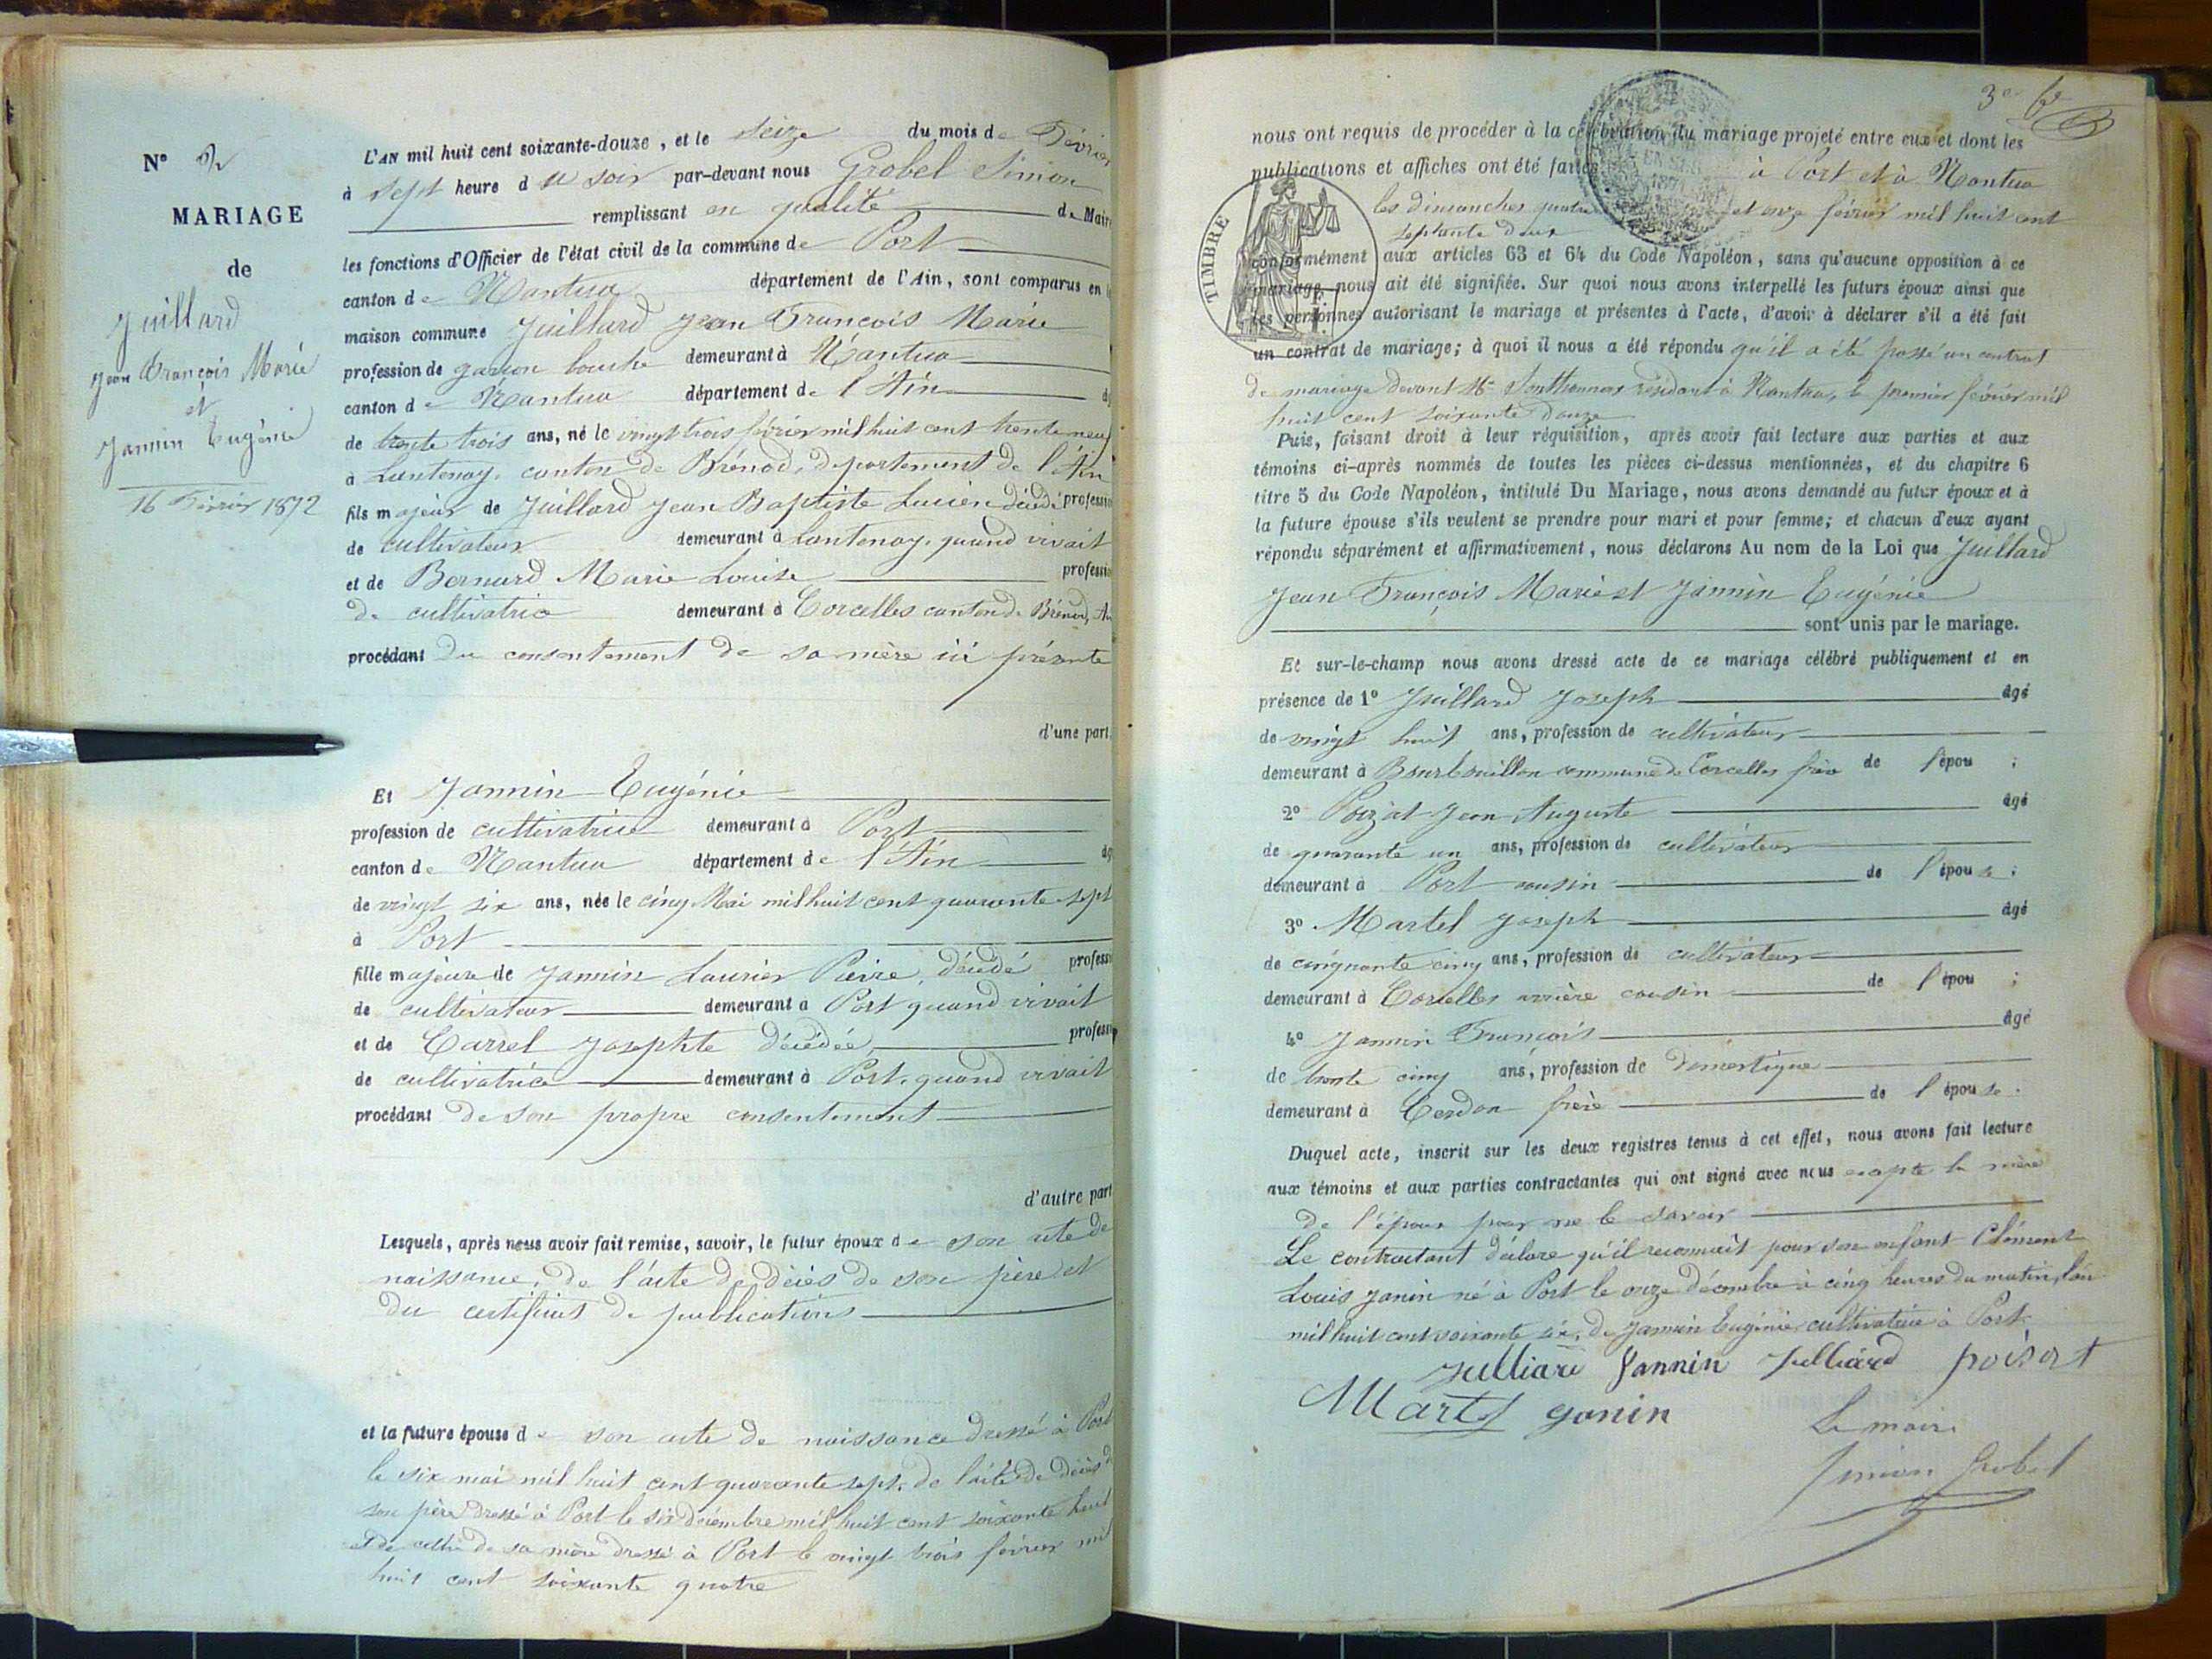 N° 2
MARIAGE
de
Juillard
Jean François Marie
et
Jannin Eugénie
16 Février 1872
L'AN mil huit cent soixante-douze, et le seize du mois de Février
à sept heure du soir par-devant nous Grobel Simon
remplissant en qualité de Maire
les fonctions d'Officier de l'état civil de la commune de Port
canton de Nantua département de l'Ain, sont comparus en la
maison commune Juillard Jean François Marie
profession de garçon bouché demeurant à Nantua
canton de Nantua département de l'Ain
de trente trois ans, né le vingt trois février mil huit cent trente neuf
à Lantenay, canton de Brénod, département de l'Ain
fils majeur de Juillard Jean Baptiste Lucien décédé profession
de cultivateur demeurant à Lantenay, quand vivait
et de Bernard Marie Louise profession
de cultivatrice demeurant à Corcelles canton de Brénod, Ain
procédant du consentement de sa mère ici présente
d'une part,
Et Jannin Eugénie
profession de cultivatrice demeurant à Port
canton de Nantua département de l'Ain
de vingt six ans, née le cinq Mai mil huit cent quarante sept
à Port
fille majeure de Jannin Laurier Pierre, décédé profession
de cultivateur demeurant à Port quand vivait
et de Carrel Josephte décédée profession
de cultivatrice demeurant à Port, quand vivait
procédant de son propre consentement
d'autre part
Lesquels, après nous avoir fait remise, savoir, le futur époux de son acte de
naissance, de l'acte de décès de son père et
du certificat de publications
et la future épouse de son acte de naissance dressé à Port
le six mai mil huit cent quarante sept, de l'acte de décès de
son père dressé à Port le six décembre mil huit cent soixante huit
et de celui de sa mère dressé à Port le vingt trois février mil
huit cent soixante quatre
3e
nous ont requis de procéder à la célébration du mariage projeté entre eux et dont les
publications et affiches ont été faites à Port et à Nantua
les dimanches quatre et onze février mil huit cent
septante deux
TIMBRE
conformément aux articles 63 et 64 du Code Napoléon, sans qu'aucune opposition à ce
mariage nous ait été signifiée. Sur quoi nous avons interpellé les futurs époux ainsi que
les personnes autorisant le mariage et présentes à l'acte, d'avoir à déclarer s'il a été fait
un contrat de mariage; à quoi il nous a été répondu qu'il a été passé un contrat
de mariage devant Me résidant à Nantua, le premier février mil
huit cent soixante douze
Puis, faisant droit à leur réquisition, après avoir fait lecture aux parties et aux
témoins ci-après nommés de toutes les pièces ci-dessus mentionnées, et du chapitre 6
titre 5 du Code Napoléon, intitulé Du Mariage, nous avons demandé au futur époux et à
la future épouse s'ils veulent se prendre pour mari et pour femme; et chacun d'eux ayant
répondu séparément et affirmativement, nous déclarons Au nom de la Loi que Juillard
Jean François Marie et Jannin Eugénie
sont unis par le mariage.
Et sur-le-champ nous avons dressé acte de ce mariage célébré publiquement et en
présence de 1° Juillard Joseph âgé
de vingt huit ans, profession de cultivateur
demeurant à Bourbouillon commune de Corcelles frère de l'épou ;
2° Poizat Jean Auguste âgé
de quarante un ans, profession de cultivateur
demeurant à Port cousin de l'épouse ;
3° Martel Joseph âgé
de cinquante cinq ans, profession de cultivateur
demeurant à Corcelles arrière cousin de l'épou ;
4° Jannin François âgé
de trente cinq ans, profession de domestique
demeurant à Cerdon frère de l'épouse.
Duquel acte, inscrit sur les deux registres tenus à cet effet, nous avons fait lecture
aux témoins et aux parties contractantes qui ont signé avec nous excepté la mère
de l'époux pour ne le savoir
Le contractant déclare qu'il reconnait pour son enfant Clément
Louis Janin né à Port le onze décembre à cinq heures du matin, l'an
mil huit cent soixante six, de Jannin Eugénie cultivatrice à Port.
Julliard Jannin Julliard poisat
Martel ganin
Le maire
Simon Grobel